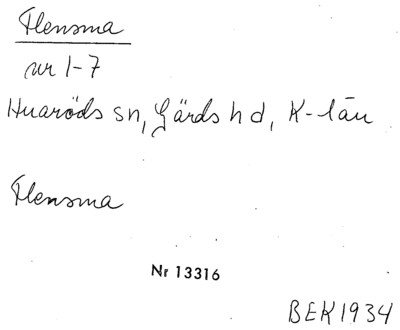 Flensma
nr 1-7
Huaröds sn, Gärds hd, K-län
Flensma
Nr 13316
BEK1934